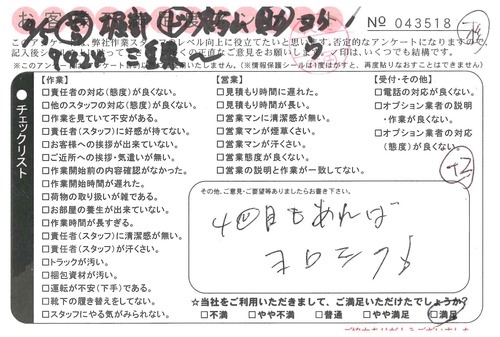 № 043518
このアンケートは、弊社作業スタッフのレベル向上に役立てたいと思います。否定的なアンケートになりますので、
※このアンケートは
いたしません。(※情報保護シールは1度はがすと、再度貼りなおすことはできません)
チェックリスト
【作業】
□責任者の対応(態度)が良くない。
□他のスタッフの対応(態度)が良くない。
□作業を見ていて不安がある。
□責任者(スタッフ)に好感が持てない。
□お客様への挨拶が出来ていない。
□ご近所への挨拶・気遣いが無い。
□作業開始前の内容確認がなかった。
□作業開始時間が遅れた。
□荷物の取り扱いが雑である。
□お部屋の養生が出来ていない。
□作業時間が長すぎる。
□責任者(スタッフ)に清潔感が無い。
□責任者(スタッフ)が汗くさい。
□トラックが汚い。
□梱包資材が汚い。
□運転が不安(下手)である。
□靴下の履き替えをしてない。
□スタッフにやる気がみられない。
【営業】
□見積もり時間に遅れた。
□見積もり時間が長い。
□営業マンに清潔感が無い。
□営業マンが煙草くさい。
□営業マンが汗くさい。
□営業態度が良くない。
□営業の説明と作業が一致してない。
【受付・その他】
□電話の対応が良くない。
□オプション業者の説明
・作業が良くない。
□オプション業者の対応
(態度)が良くない。
+2
その他、ご意見・ご要望等ありましたらお書き下さい。
4回目もあれば
ヨロシク
☆当社をご利用いただきまして、ご満足いただけたでしょうか?
□不満 □やや不満 □普通 □やや満足 □満足